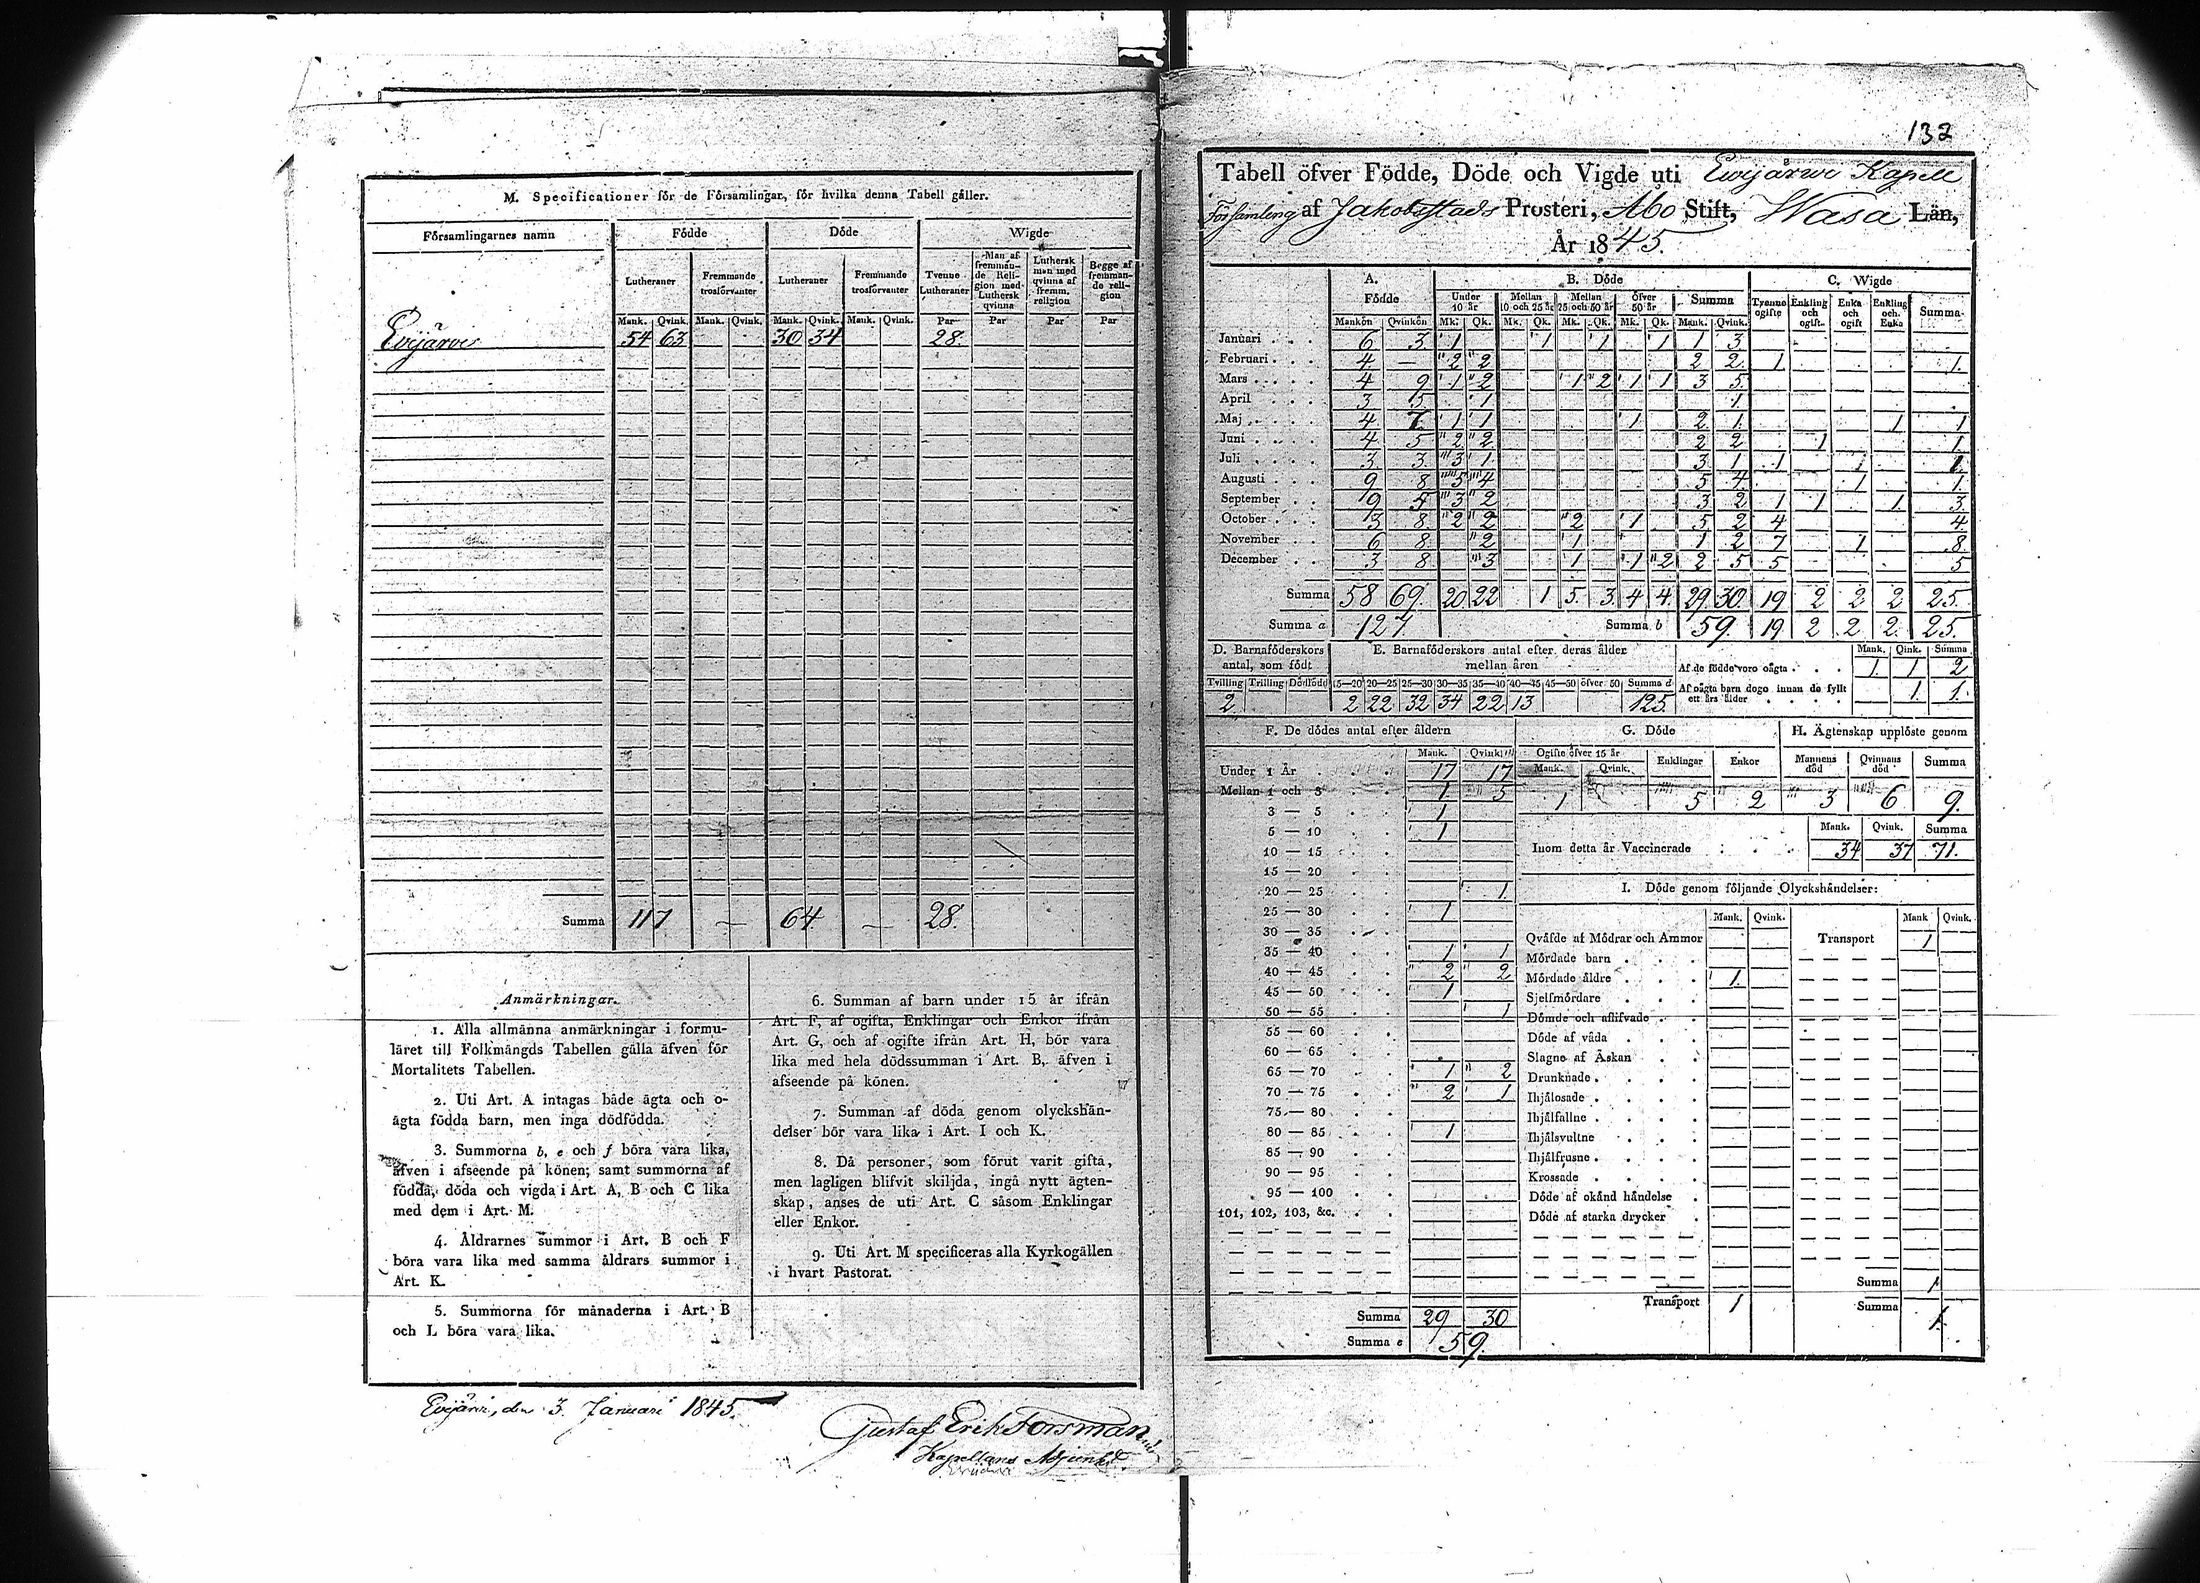 M. Specificationer för de Församlingar, för hvilka denna Tabell gäller.
Församlingarnes namn Födde Döde Wigde
Lutheraner Fremmande trosförvanter Lutheraner Fremmande trosförvanter Tvenne Lutheraner Man af fremmande Religion med Luthersk qvinna Luthersk man med qvinna af fremm. religion Begge af fremmande religion
Mank. Qvink. Mank. Qvink. Mank. Qvink. Mank. Qvink. Par Par Par Par
Evijärvi 54 63 30 34 28.
Summa 117 — 64. — 28.
Anmärkningar.
1. Alla allmänna anmärkningar i formu-
läret till Folkmängds Tabellen gälla äfven för
Mortalitets Tabellen.
2. Uti Art. A intagas både ägta och o-
ägta födda barn, men inga dödfödda.
3. Summorna b, e och f böra vara lika,
äfven i afseende på könen; samt summorna af
födda, döda och vigda i Art. A, B och C lika
med dem i Art. M.
4. Åldrarnes summor i Art. B och F
böra vara lika med samma åldrars summor i
Art. K.
5. Summorna för månaderna i Art. B
och L böra vara lika.
6. Summan af barn under 15 år ifrån
Art. F, af ogifta, Enklingar och Enkor ifrån
Art. G, och af ogifte ifrån Art. H, bör vara
lika med hela dödssumman i Art. B, äfven i
afseende på könen.
7. Summan af döda genom olyckshän-
delser bör vara lika i Art. I och K.
8. Då personer, som förut varit gifta,
men lagligen blifvit skiljda, ingå nytt ägten-
skap, anses de uti Art. C såsom Enklingar
eller Enkor.
9. Uti Art. M specificeras alla Kyrkogällen
i hvart Pastorat.
Evijärvi, den 3 Januari 1845.
Gustaf Erik Forsman
Kapellans Adjunkt.
132
Tabell öfver Födde, Döde och Vigde uti Ewijärwi Kapell
Församling af Jakobstads Prosteri, Åbo Stift, Wasa Län,
År 1845.
A. Födde B. Döde C. Wigde
Under 10 år Mellan 10 och 25 år Mellan 25 och 50 år Öfver 50 år Summa Tvenne ogifte Enkling och ogift Enka och ogift Enkling och Enka Summa
Mankön Qvinkön Mk. Qk. Mk. Qk. Mk. Qk. Mk. Qk. Mank. Qvink.
Januari 6 3 1 1 1 1 1 3
Februari 4 — 2 2 2 2 1 1.
Mars 4 9 1 2 1 2 1 1 3 5
April 3 5 1 1
Maj 4 7 1 1 1 2 1 1 1
Juni 4 5 2 2 2 2 1 1.
Juli 3 3 3 1 3 1 1 1.
Augusti 9 8 5 4 5 4 1 1.
September 9 5 3 2 3 2 1 1 1 3.
October 13 8 2 2 2 1 5 2 4 4.
November 6 8 2 1 1 2 7 1 8
December 3 8 3 1 1 2 2 5 5 5
Summa 58 69 20 22 1 5 3 4 4 29 30 19 2 2 2 25.
Summa a 127. Summa b 59. 19 2 2 2 25.
D. Barnaföderskors antal, som födt E. Barnaföderskors antal efter deras ålder mellan åren Mank. Qink. Summa
Tvilling Trilling Dödfödd 15—20 20—25 25—30 30—35 35—40 40—45 45—50 öfver 50 Summa d
2 2 22 32 34 22 13 125.
Af de födde voro oägta 1 1 2
Af oägta barn dogo innan de fyllt ett års ålder 1. 1.
F. De dödes antal efter åldern G. Döde H. Ägtenskap upplöste genom
Mank. Qvink. Ogifte öfver 15 år Mank. Qvink. Enklingar Enkor Mannens död Qvinnans död Summa
1 5 2 3 6 9.
Under 1 År 17 17
Mellan 1 och 3 1 5
3 — 5 1
5 — 10 1
10 — 15
15 — 20
20 — 25 1.
25 — 30 1
30 — 35
35 — 40 1 1
40 — 45 2 2
45 — 50 1
50 — 55 1
55 — 60
60 — 65
65 — 70 1 2
70 — 75 2 1
75 — 80
80 — 85 1
85 — 90
90 — 95
95 — 100
101, 102, 103, &c.
Summa 29 30
Summa e 59.
Mank. Qvink. Summa
Inom detta år Vaccinerade 34 37 71.
I. Döde genom följande Olyckshändelser:
Mank. Qvink. Mank Qvink.
Qväfde af Mödrar och Ammor Transport 1
Mördade barn
Mördade äldre 1.
Sjelfmördare
Dömde och aflifvade
Döde af våda
Slagne af Åskan
Drunknade
Ihjälosade
Ihjälfallne
Ihjälsvultne
Ihjälfrusne
Krossade
Döde af okänd händelse
Döde af starka drycker
Summa 1
Transport 1 Summa 1.